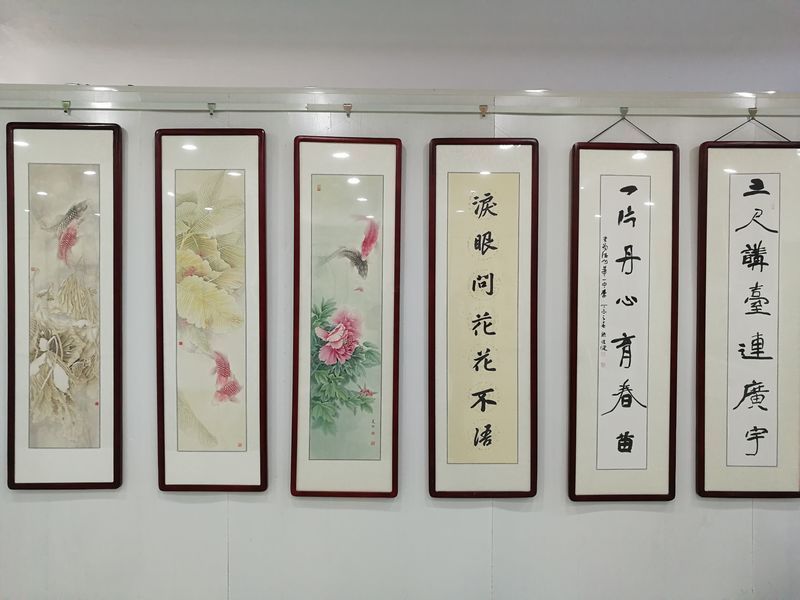 三尺講臺連廣宇
一片丹心育春苗
淚眼問花花不語